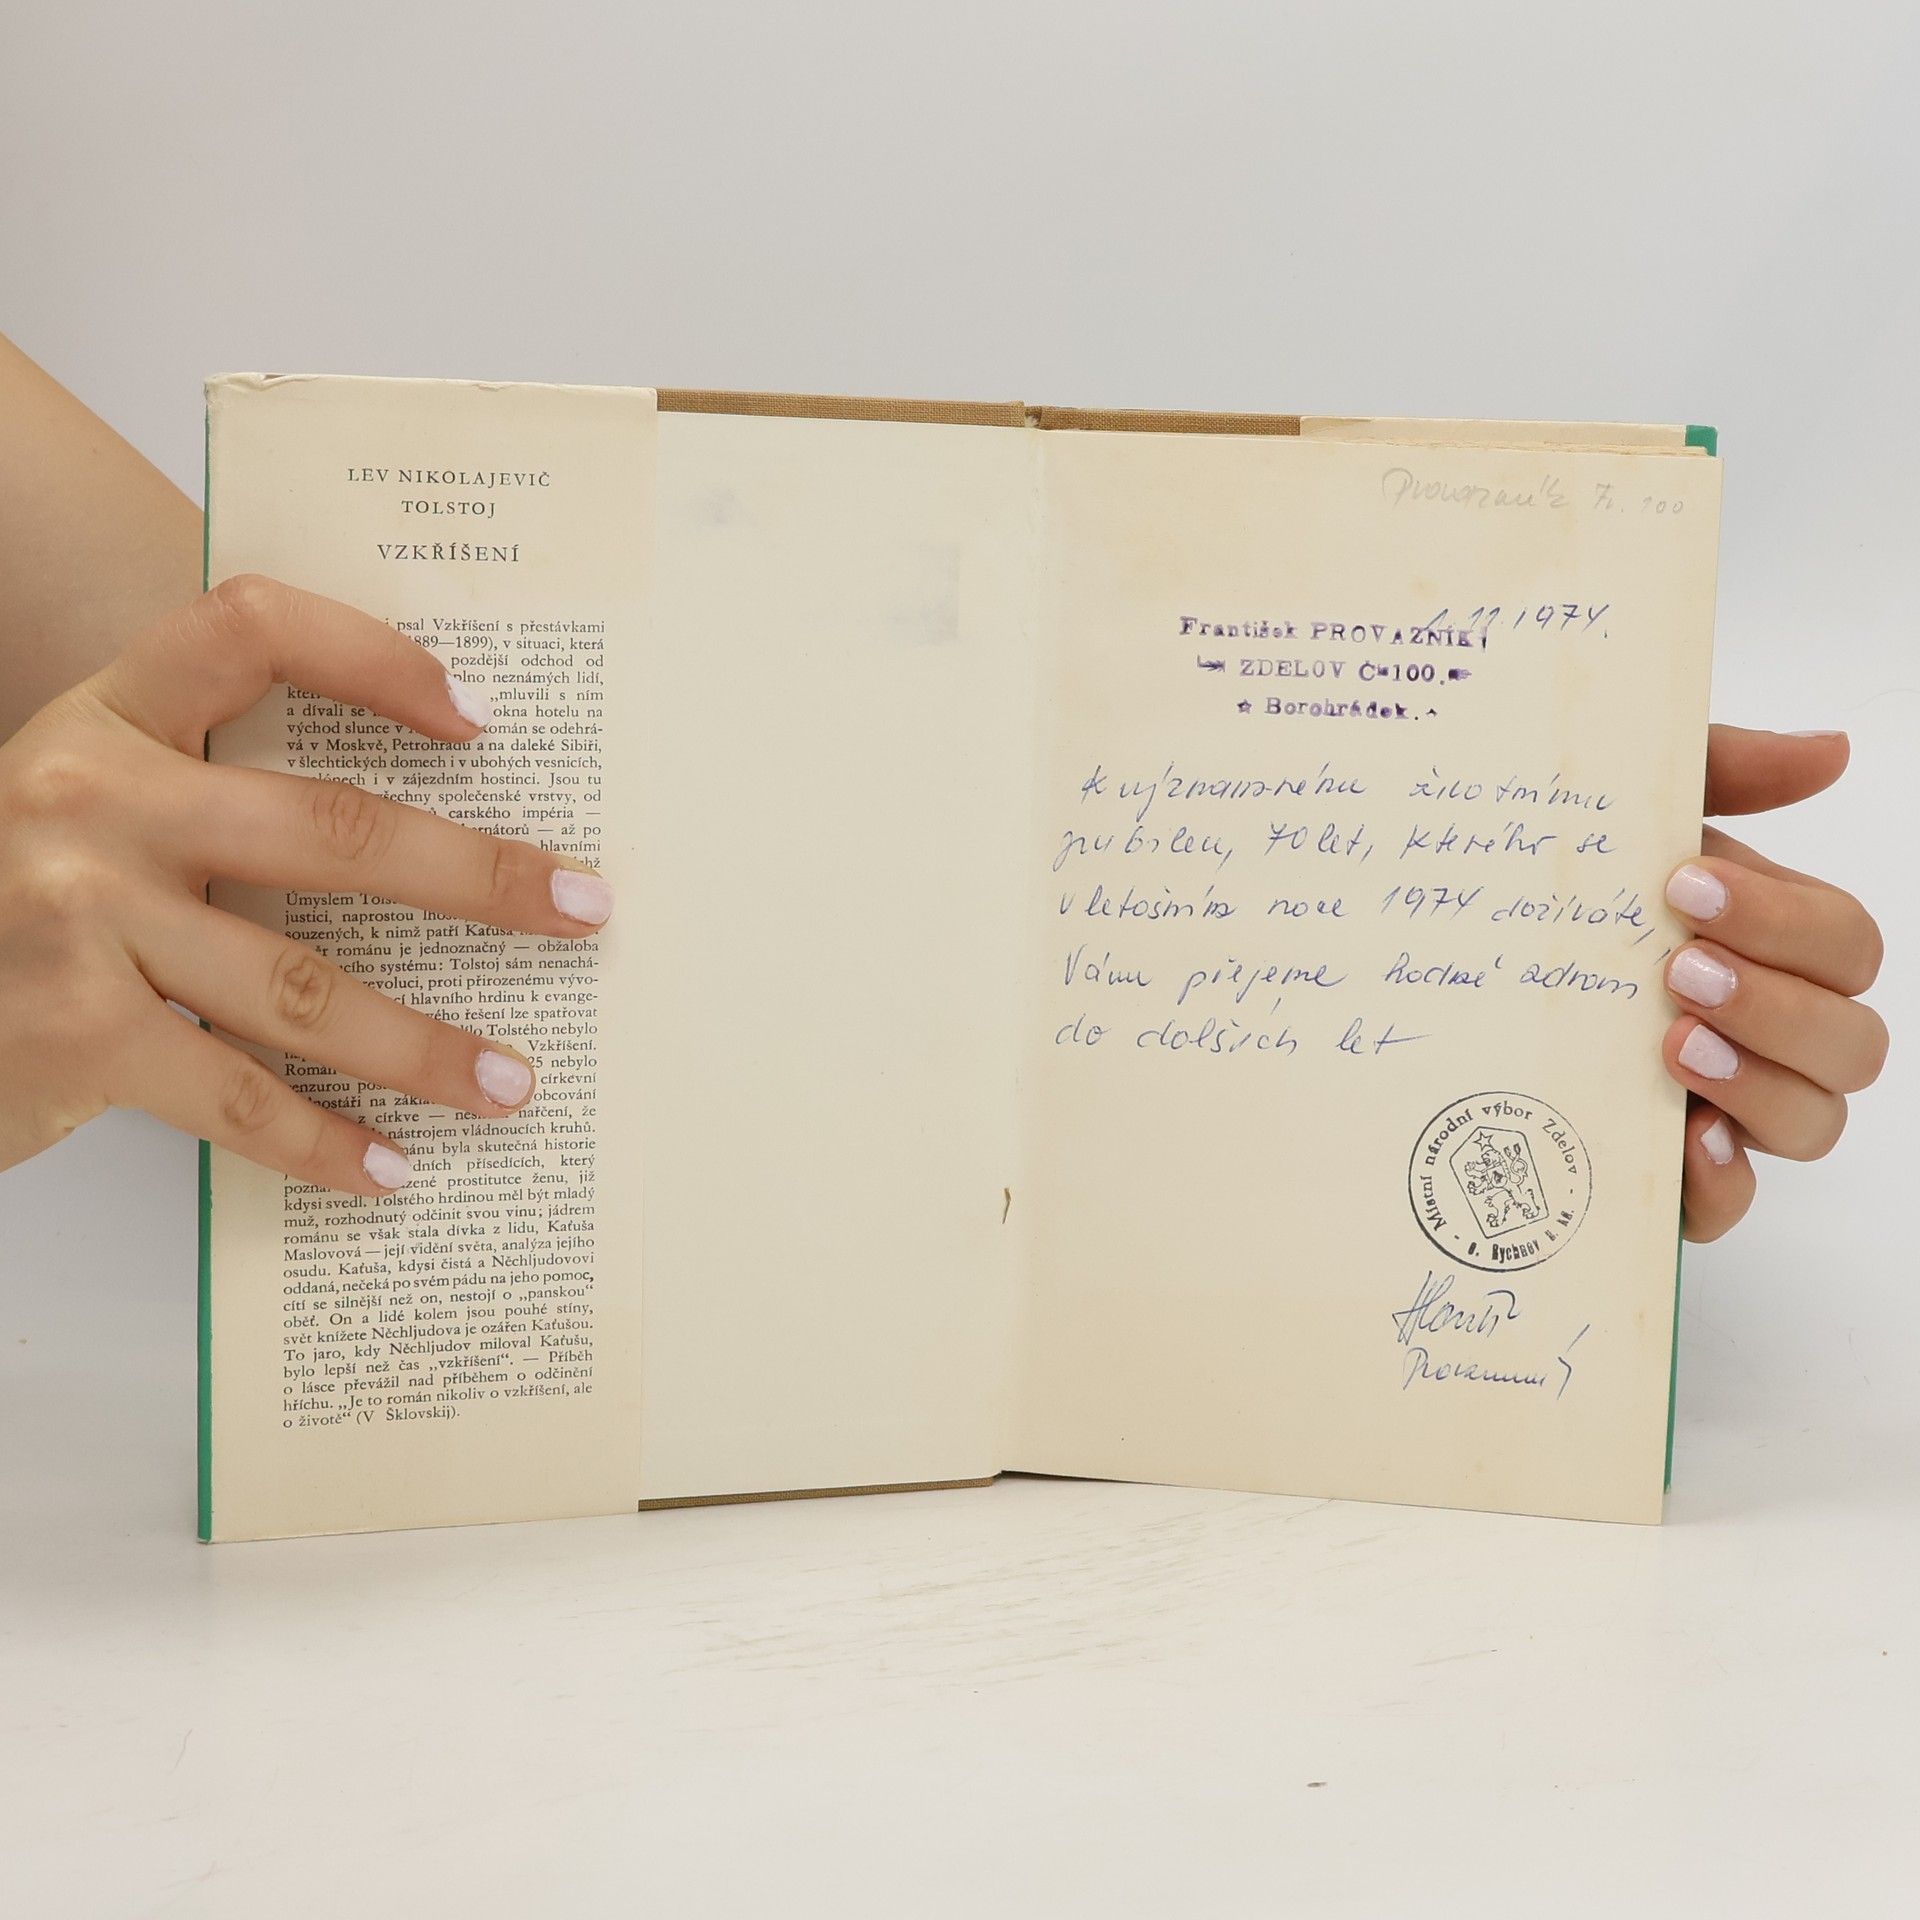 LEV NIKOLAJEVIČ
TOLSTOJ
VZKŘÍŠENÍ
psal Vzkříšení s přestávkami
889—1899), v situaci, která
pozdější odchod od
plno neznámých lidí,
kteří „mluvili s ním
a dívali se okna hotelu na
východ slunce v román se odehrá-
vá v Moskvě, Petrohradu a na daleké Sibiři,
v šlechtických domech i v ubohých vesnicích,
i v zájezdním hostinci. Jsou tu
všechny společenské vrstvy, od
carského impéria —
— až po
hlavními
Úmyslem
justici, naprostou
souzených, k nimž patří Kaťuša
románu je jednoznačný — obžaloba
systému: Tolstoj sám nenachá-
revoluci, proti přirozenému vývo-
hlavního hrdinu k evange-
řešení lze spatřovat
Tolstého nebylo
Vzkříšení.
Román 25 nebylo
cenzurou církevní
na obcování
z církve — nařčení, že
nástrojem vládnoucích kruhů.
byla skutečná historie
přísedících, který
prostitutce ženu, již
kdysi svedl. Tolstého hrdinou měl být mladý
muž, rozhodnutý odčinit svou vinu; jádrem
románu se však stala dívka z lidu, Kaťuša
Maslovová — její vidění světa, analýza jejího
osudu. Kaťuša, kdysi čistá a Něchljudovovi
oddaná, nečeká po svém pádu na jeho pomoc,
cítí se silnější než on, nestojí o „panskou“
oběť. On a lidé kolem jsou pouhé stíny,
svět knížete Něchljudova je ozářen Kaťušou.
To jaro, kdy Něchljudov miloval Kaťušu,
bylo lepší než čas „vzkříšení“. — Příběh
o lásce převážil nad příběhem o odčinění
hříchu. „Je to román nikoliv o vzkříšení, ale
o životě“ (V Šklovskij).
Provazník Fr. 100
1. 11. 1974.
František PROVAZNÍK
ZDELOV Č 100.
Borohrádek.
K významnému životnímu
jubileu, 70 let, kterého se
v letošním roce 1974 dožíváte,
Vám přejeme hodně zdraví
do dalších let
Místní národní výbor Zdelov
- o. Rychnov n. Kn. -